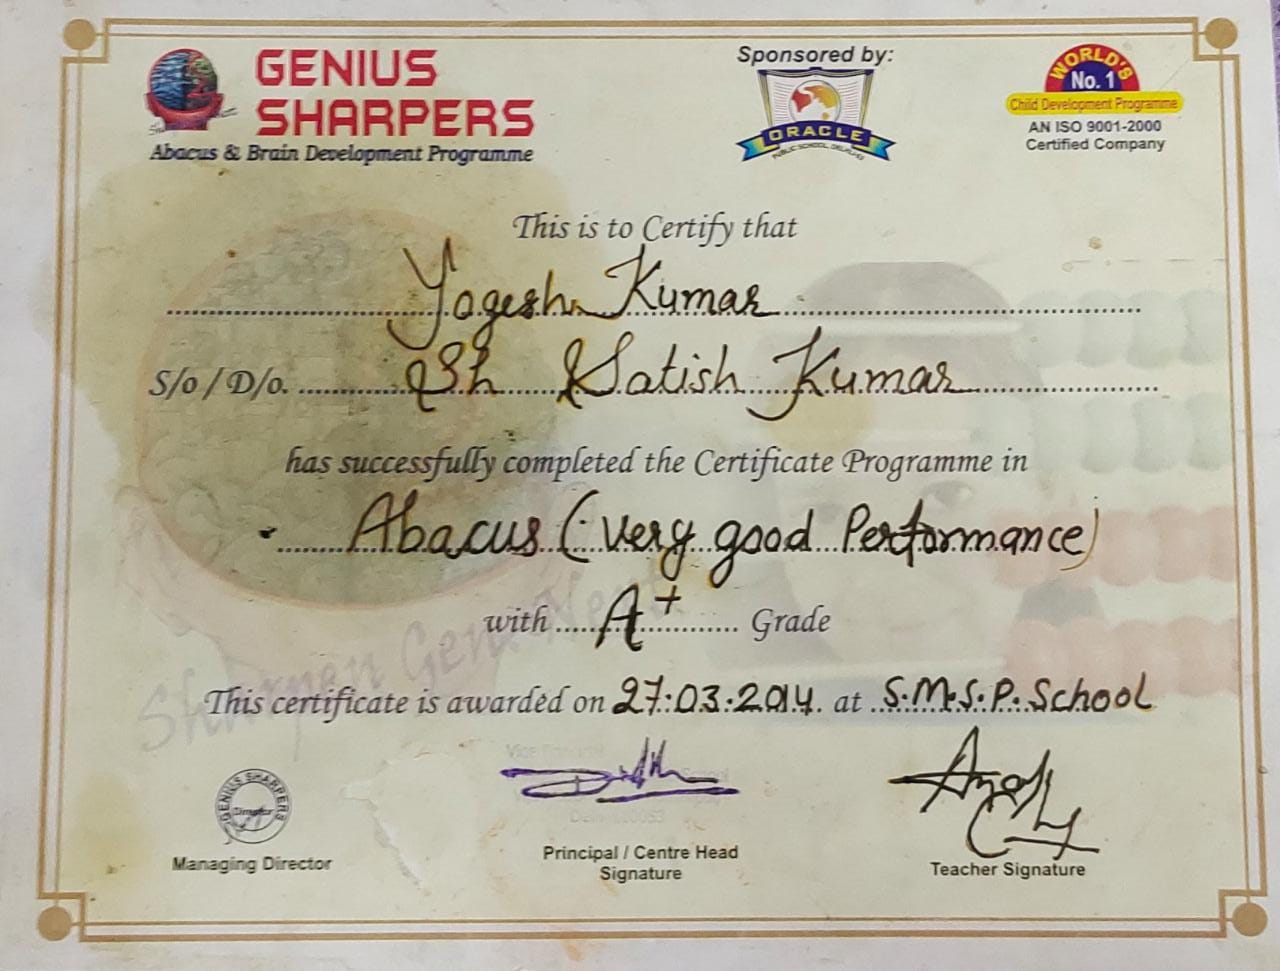 GENIUS
SHARPERS
Abacus & Brain Development Programme
Sponsored by:
ORACLE
PUBLIC SCHOOL, DELHI-53
WORLD'S
No. 1
Child Development Programme
AN ISO 9001-2000
Certified Company
This is to Certify that
Yogesh Kumar
S/o / D/o. Sh Satish Kumar
has successfully completed the Certificate Programme in
Abacus (very good Performance)
with A+ Grade
This certificate is awarded on 27.03.2014 at S.M.S.P. School
GENIUS SHARPERS
Director
Managing Director
Principal / Centre Head
Signature
Teacher Signature